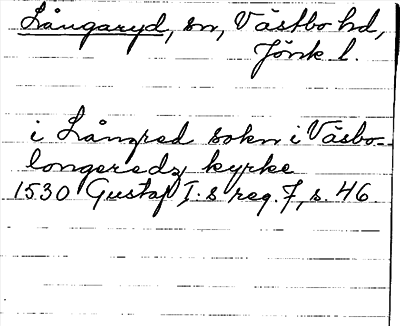 Långaryd, sn, Västbo hd,
Jönk l.
i Långred sokn i Väsbo-
longeredz kyrke
1530 Gustaf I:s reg. 7, s. 46.